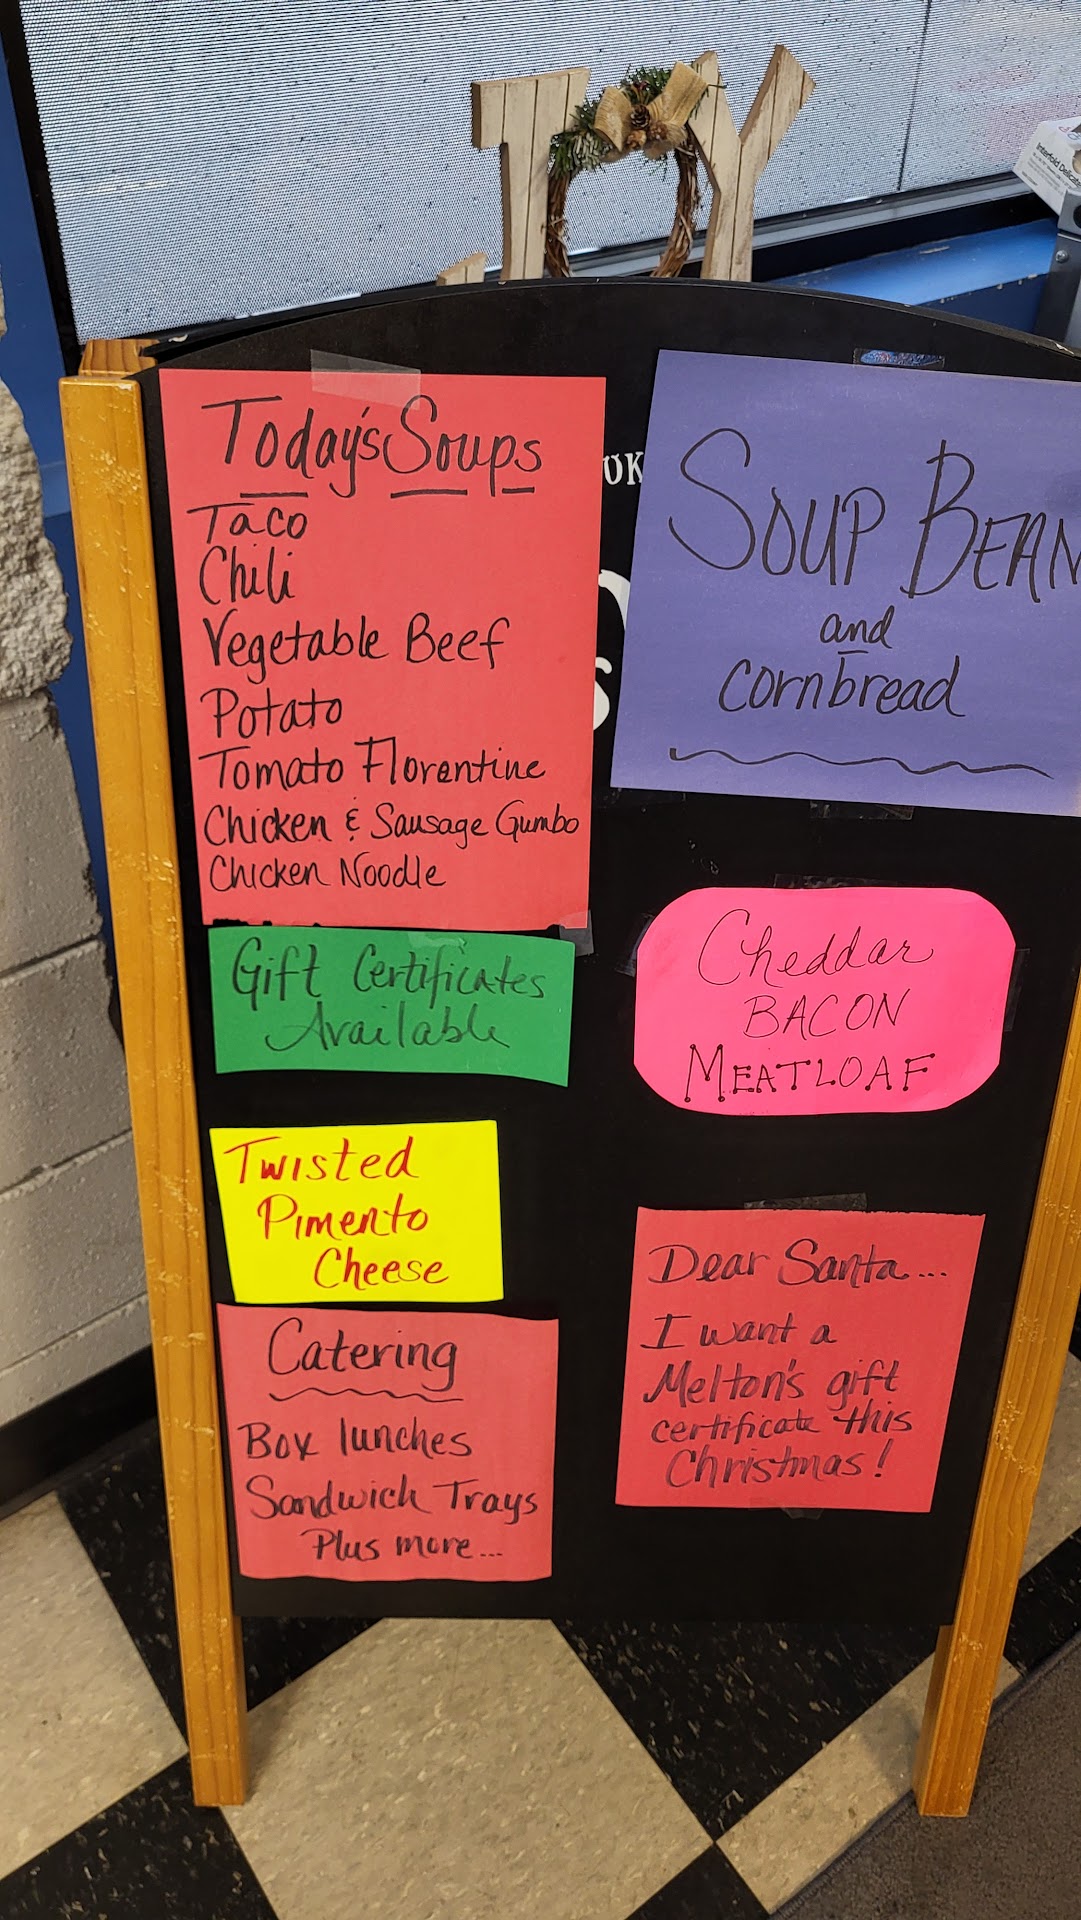 JOY
Interfold Delicat
Today's Soups
Taco
Chili
Vegetable Beef
Potato
Tomato Florentine
Chicken & Sausage Gumbo
Chicken Noodle
Gift Certificates
Available
Twisted
Pimento
Cheese
Catering
Box lunches
Sandwich Trays
Plus more...
OK
S
SOUP BEAN
and
Cornbread
Cheddar
BACON
MEATLOAF
Dear Santa...
I want a
Melton's gift
certificate this
Christmas!